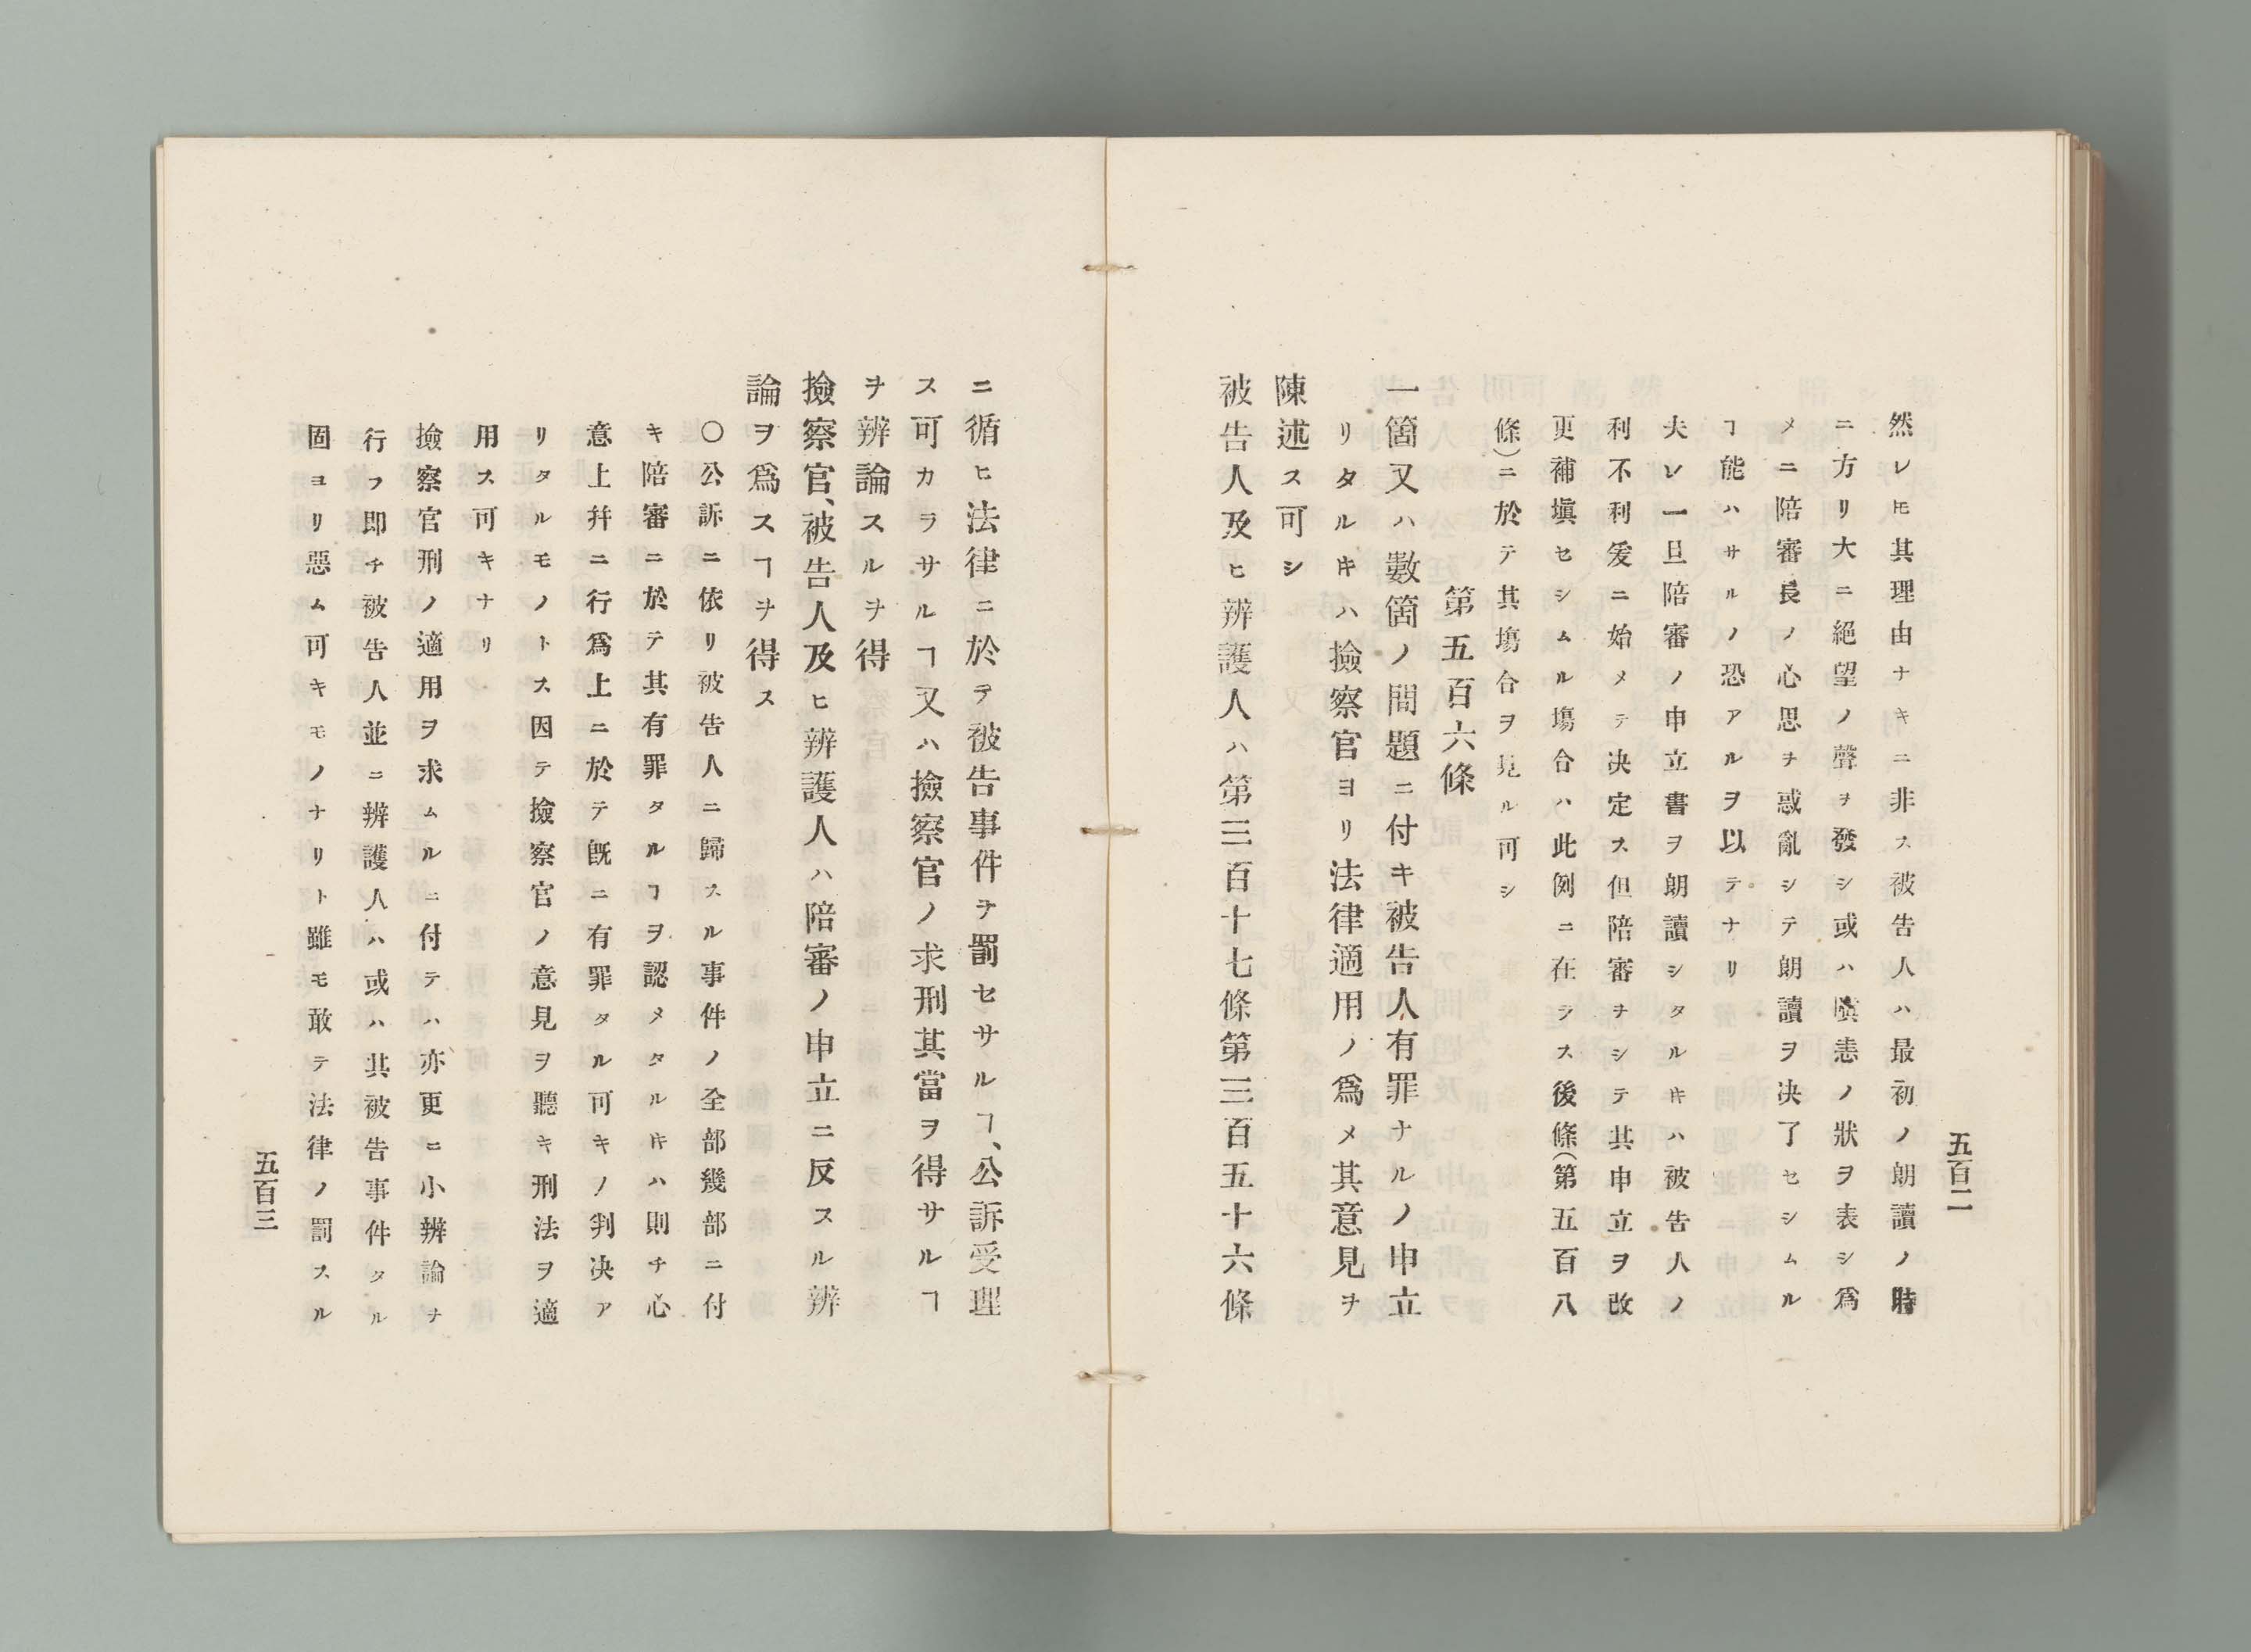 五百二
然レ𪜈其理由ナキニ非ス被告人ハ最初ノ朗讀ノ時
ニ方リ大ニ絕望ノ聲ヲ發シ或ハ嗔恚ノ狀ヲ表シ爲
メニ陪審長ノ心思ヲ惑亂シテ朗讀ヲ决了セシムル
ヿ能ハサルノ恐アルヲ以テナリ
夫レ一旦陪審ノ申立書ヲ朗讀シタルキハ被告人ノ
利不利爰ニ始メテ决定ス但陪審ヲシテ其申立ヲ改
更補塡セシムル塲合ハ此例ニ在ラス後條(第五百八
條)ニ於テ其塲合ヲ見ル可シ
第五百六條
一箇又ハ數箇ノ問題ニ付キ被告人有罪ナルノ申立
リタルキハ撿察官ヨリ法律適用ノ爲メ其意見ヲ
陳述ス可シ
被告人及ヒ辨護人ハ第三百十七條第三百五十六條
ニ循ヒ法律ニ於テ被告事件ヲ罰セサルヿ、公訴受理
ス可カラサルヿ又ハ撿察官ノ求刑其當ヲ得サルヿ
ヲ辨論スルヲ得
撿察官、被告人及ヒ辨護人ハ陪審ノ申立ニ反スル辨
論ヲ爲スヿヲ得ス
〇公訴ニ依リ被告人ニ歸スル事件ノ全部幾部ニ付
キ陪審ニ於テ其有罪タルヿヲ認メタルキハ則チ心
意上幷ニ行爲上ニ於テ旣ニ有罪タル可キノ判决ア
リタルモノトス因テ撿察官ノ意見ヲ聽キ刑法ヲ適
用ス可キナリ
撿察官刑ノ適用ヲ求ムルニ付テハ亦更ニ小辨論ヲ
行フ即チ被告人並ニ辨護人ハ或ハ其被告事件タル
固ヨリ惡ム可キモノナリト雖モ敢テ法律ノ罰スル
五百三